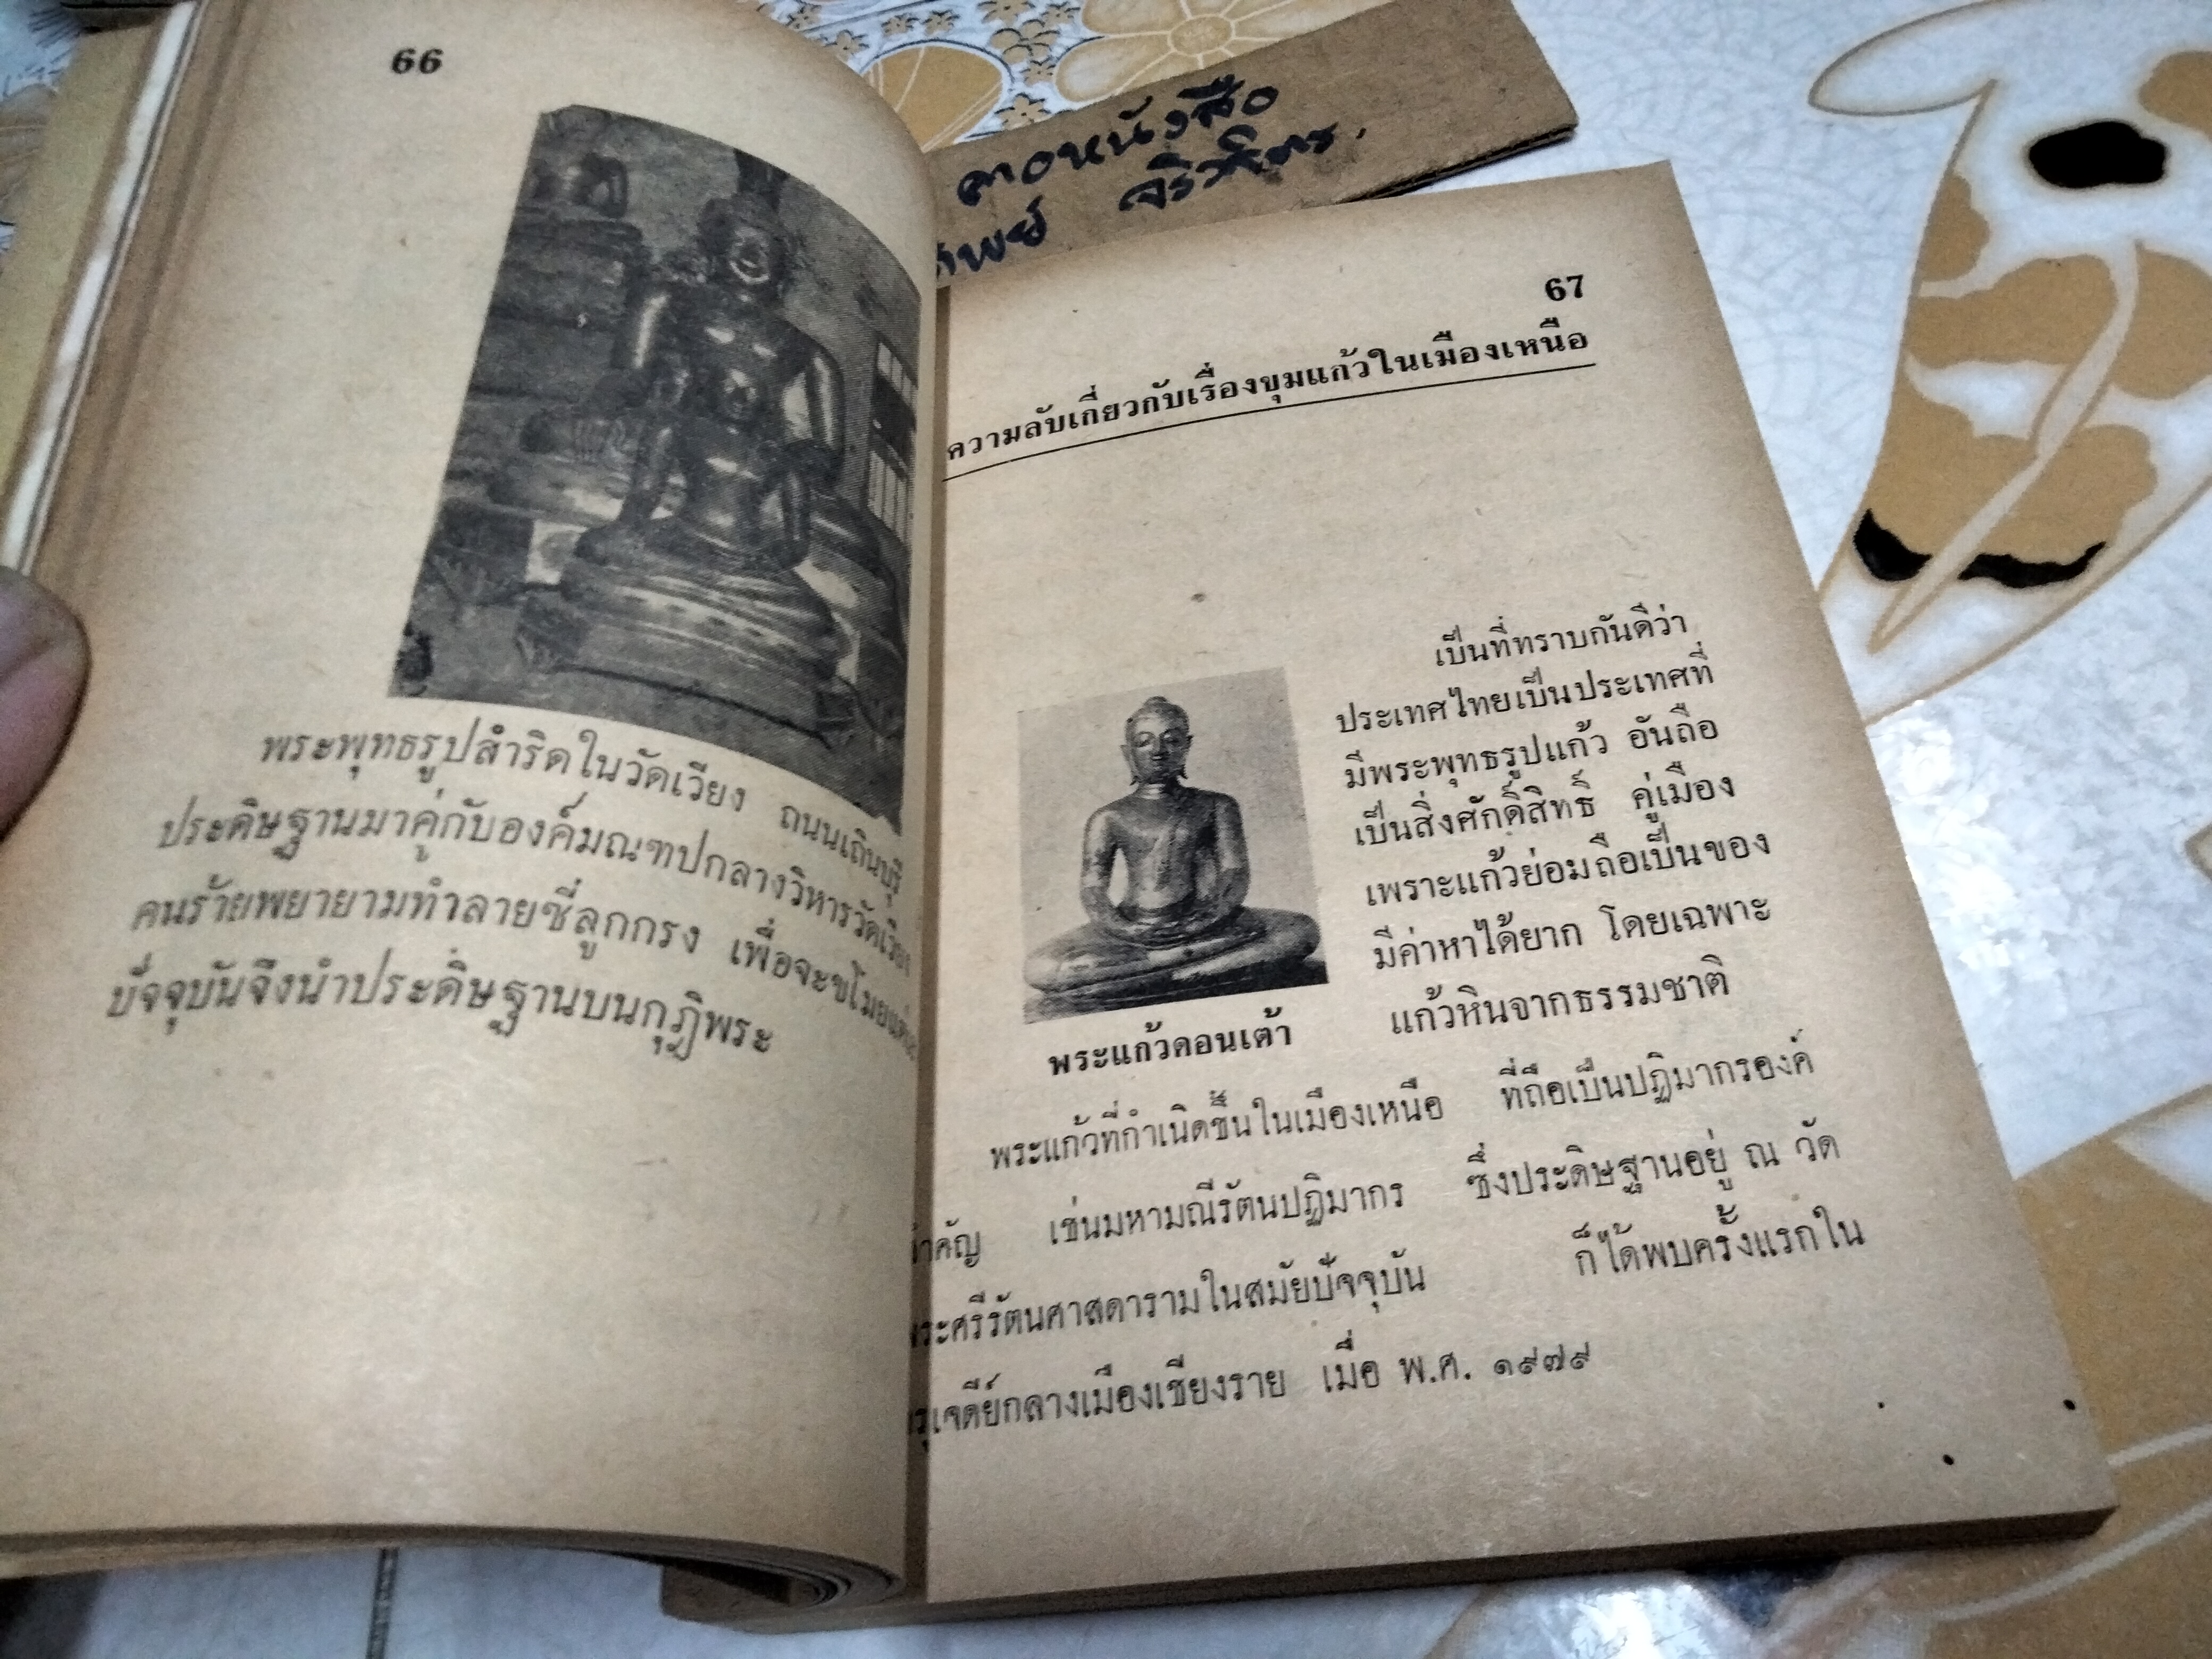 66
พระพุทธรูปสำริดในวัดเวียง ถนนเถินบุรี
ประดิษฐานมาคู่กับองค์มณฑปกลางวิหารวัดเวียง
คนร้ายพยายามทำลายซี่ลูกกรง เพื่อจะขโมย
ปัจจุบันจึงนำประดิษฐานบนกุฏิพระ
หนังสือ
67
ความลับเกี่ยวกับเรื่องขุมแก้วในเมืองเหนือ
เป็นที่ทราบกันดีว่า
ประเทศไทยเป็นประเทศที่
มีพระพุทธรูปแก้ว อันถือ
เป็นสิ่งศักดิ์สิทธิ์ คู่เมือง
เพราะแก้วย่อมถือเป็นของ
มีค่าหาได้ยาก โดยเฉพาะ
แก้วหินจากธรรมชาติ
พระแก้วดอนเต้า
พระแก้วที่กำเนิดขึ้นในเมืองเหนือ ที่ถือเป็นปฏิมากรองค์
สำคัญ เช่นมหามณีรัตนปฏิมากร ซึ่งประดิษฐานอยู่ ณ วัด
พระศรีรัตนศาสดารามในสมัยปัจจุบัน ก็ได้พบครั้งแรกใน
กรุเจดีย์กลางเมืองเชียงราย เมื่อ พ.ศ. ๑๙๗๙